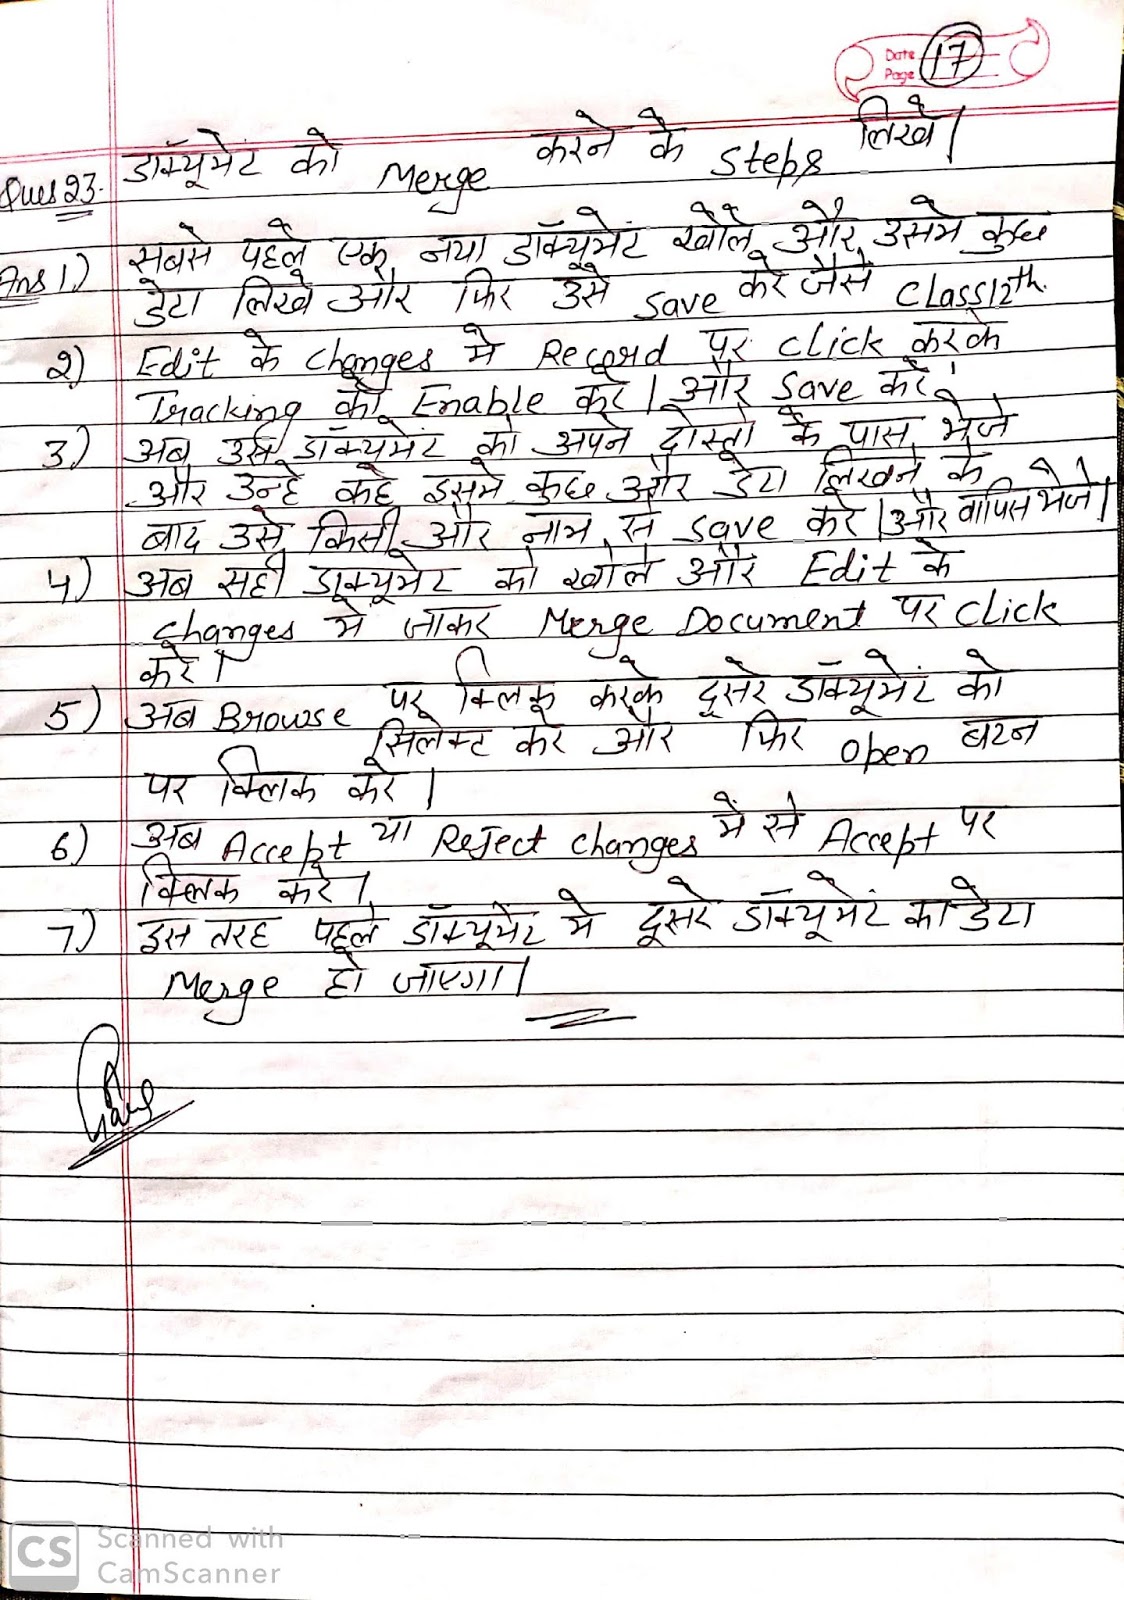 Date
Page 17
Ques 23. डॉक्यूमेंट को Merge करने के Steps लिखे।
Ans 1) सबसे पहले एक नया डॉक्यूमेंट खोले और उसमे कुछ
डेटा लिखे और फिर उसे save करे जैसे Class12th.
2) Edit के changes मे Record पर click करके
Tracking को Enable करे। और save करे।
3) अब उस डॉक्यूमेंट को अपने दोस्तो के पास भेजे
और उन्हे कहे इसमे कुछ और डेटा लिखने के
बाद उसे किसी और नाम से save करे। और वापिस भेजे।
4) अब सही डॉक्यूमेंट को खोले और Edit के
changes मे जाकर Merge Document पर click
करे।
5) अब Browse पर क्लिक करके दूसरे डॉक्यूमेंट को
सिलेक्ट करे और फिर open बटन
पर क्लिक करे।
6) अब Accept या Reject changes में से Accept पर
क्लिक करे।
7) इस तरह पहले डॉक्यूमेंट मे दूसरे डॉक्यूमेंट का डेटा
Merge हो जाएगा।
CS Scanned with
CamScanner